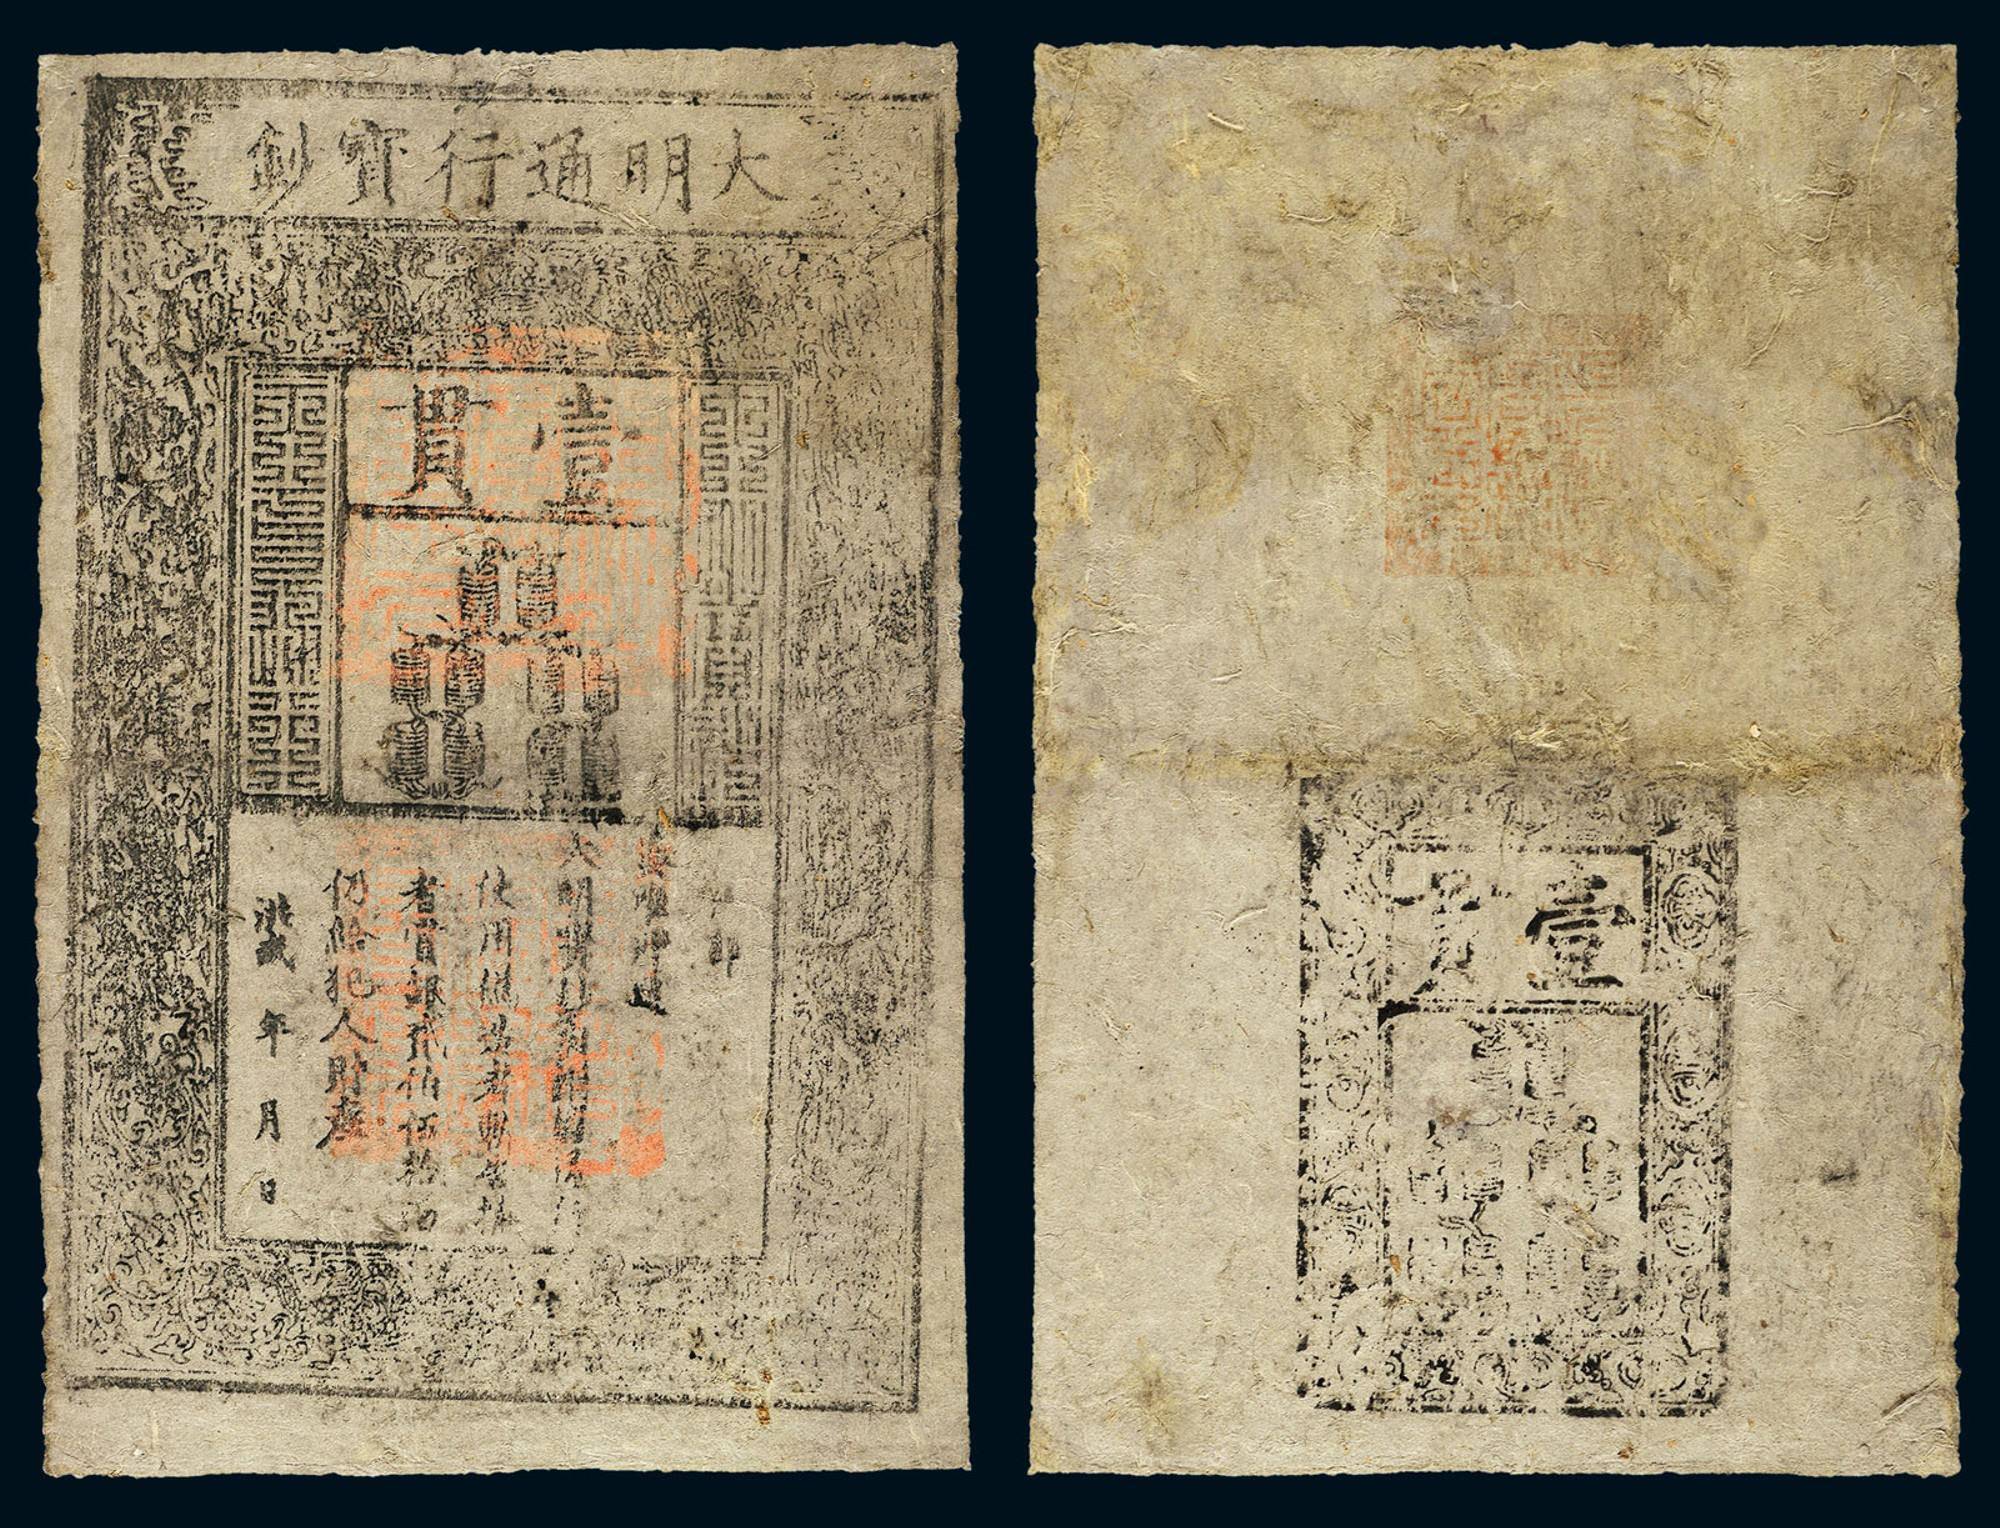 大明通行寶鈔
壹貫
大明寶鈔
天下通行
奏准印造
大明寶鈔與銅錢通行
使用偽造者斬告捕
者賞銀貳伯伍拾兩
仍給犯人財產
洪武 年 月 日
壹貫